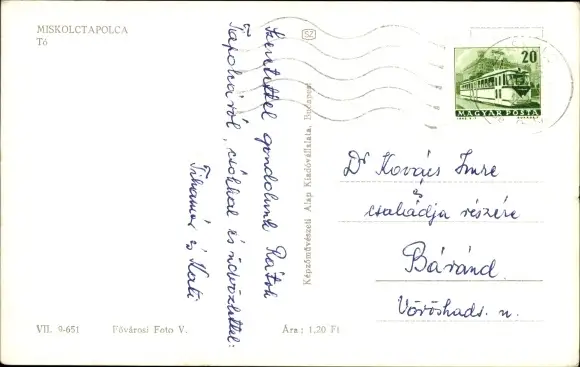 MISKOLCTAPOLCA
Tó
Szeretettel gondolunk Rátok
Tapolcáról, csókkal és üdvözlettel:
Tihamér és Kati
Képzőművészeti Alap Kiadóvállalata, Budapest
SZ
20
MAGYAR POSTA
Dr Kovács Imre
és
családja részére
Báránd
Vöröshads. u.
VII. 9-651 Fővárosi Foto V. Ára: 1,20 Ft